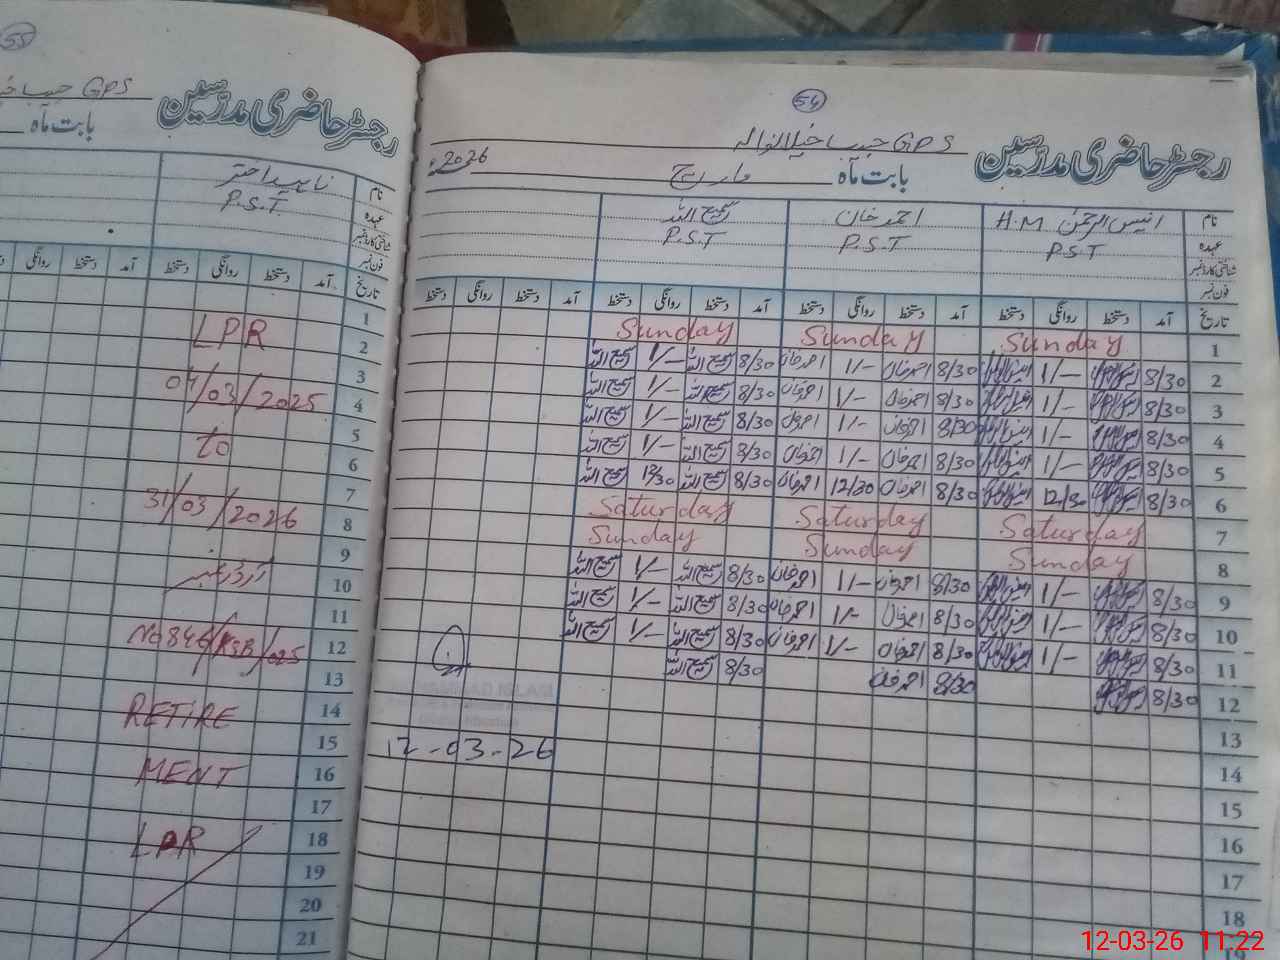 55
GPS
رجسٹر حاضری مدرسین
بابت ماہ
ناہید اختر
نام
P.S.T.
عہدہ
شناختی کارڈ نمبر
فون نمبر
تاریخ آمد دستخط روانگی دستخط آمد دستخط روانگی
1
LPR
2
3
04/03/2025
4
5
to
6
7
31/03/2026
8
9
آرڈر نمبر
10
11
No 846/KSB/025
12
13
RETIRE
14
15
MENT
16
17
LPR
18
19
20
21
54
رجسٹر حاضری مدرسین
GPS
بابت ماہ مارچ 2026ء
نام انیس الرحمن H.M احمد خان سمیع اللہ
عہدہ P.S.T P.S.T P.S.T
شناختی کارڈ نمبر
فون نمبر
تاریخ آمد دستخط روانگی دستخط آمد دستخط روانگی دستخط آمد دستخط روانگی دستخط آمد دستخط روانگی دستخط
1 Sunday Sunday Sunday
2 8/30 1/- 8/30 احمد خان 1/- احمد خان 8/30 سمیع اللہ 1/- سمیع اللہ
3 8/30 1/- 8/30 احمد خان 1/- احمد خان 8/30 سمیع اللہ 1/- سمیع اللہ
4 8/30 1/- 8/30 احمد خان 1/- احمد خان 8/30 سمیع اللہ 1/- سمیع اللہ
5 8/30 1/- 8/30 احمد خان 1/- احمد خان 8/30 سمیع اللہ 1/- سمیع اللہ
6 8/30 12/30 8/30 احمد خان 12/30 احمد خان 8/30 سمیع اللہ 12/30 سمیع اللہ
7 Saturday Saturday Saturday
8 Sunday Sunday Sunday
9 8/30 1/- 8/30 احمد خان 1/- احمد خان 8/30 سمیع اللہ 1/- سمیع اللہ
10 8/30 1/- 8/30 احمد خان 1/- احمد خان 8/30 سمیع اللہ 1/- سمیع اللہ
11 8/30 1/- 8/30 احمد خان 1/- احمد خان 8/30 سمیع اللہ 1/- سمیع اللہ
12 8/30 8/30 احمد خان 8/30 سمیع اللہ
13
12-03-26
14
15
16
17
18
19
12-03-26 11:22